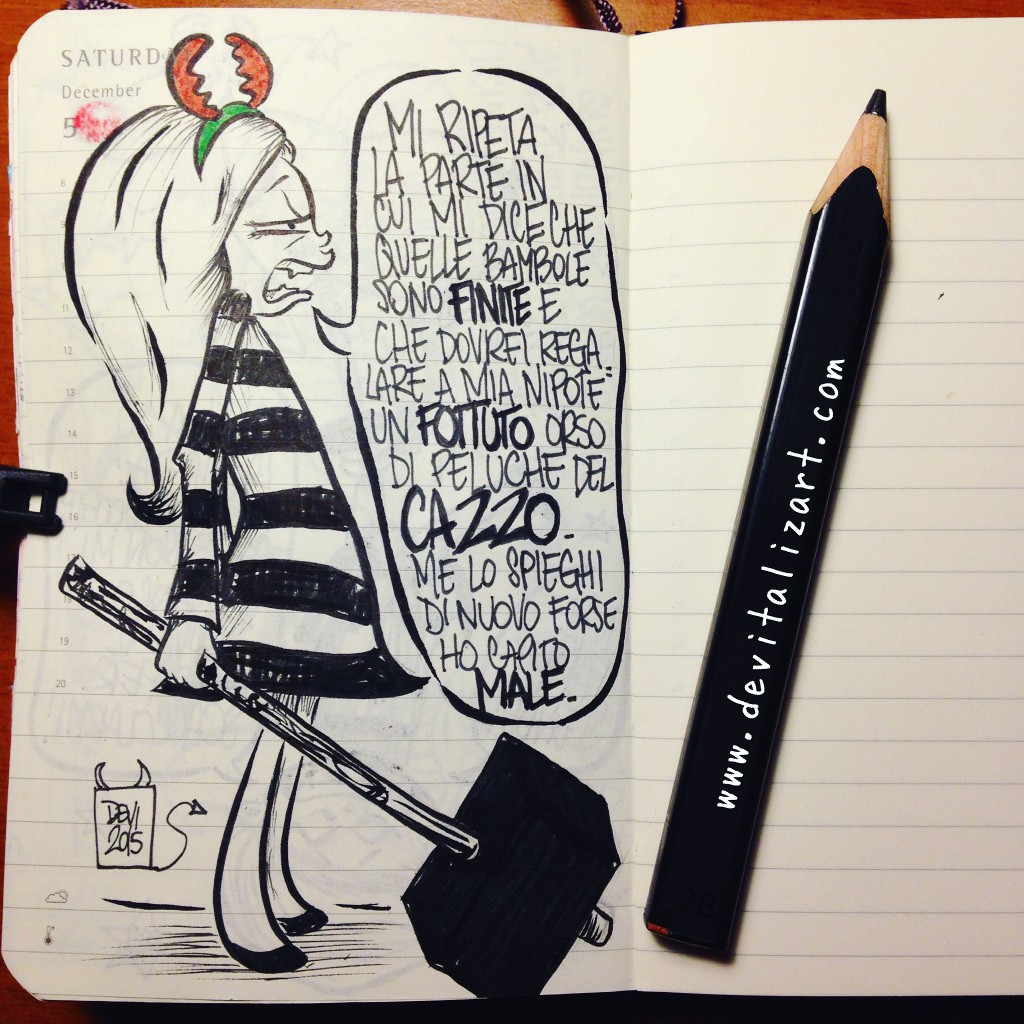 SATURDA
December
5
8
11
12
13
14
15
16
17
19
20
MI RIPETA
LA PARTE IN
CUI MI DICE CHE
QUELLE BAMBOLE
SONO FINITE E
CHE DOVREI REGA
LARE A MIA NIPOTE
UN FOTTUTO ORSO
DI PELUCHE DEL
CAZZO.
ME LO SPIEGHI
DI NUOVO FORSE
HO CAPITO
MALE.
DEVI
2015
www.devitalizart.com
2B